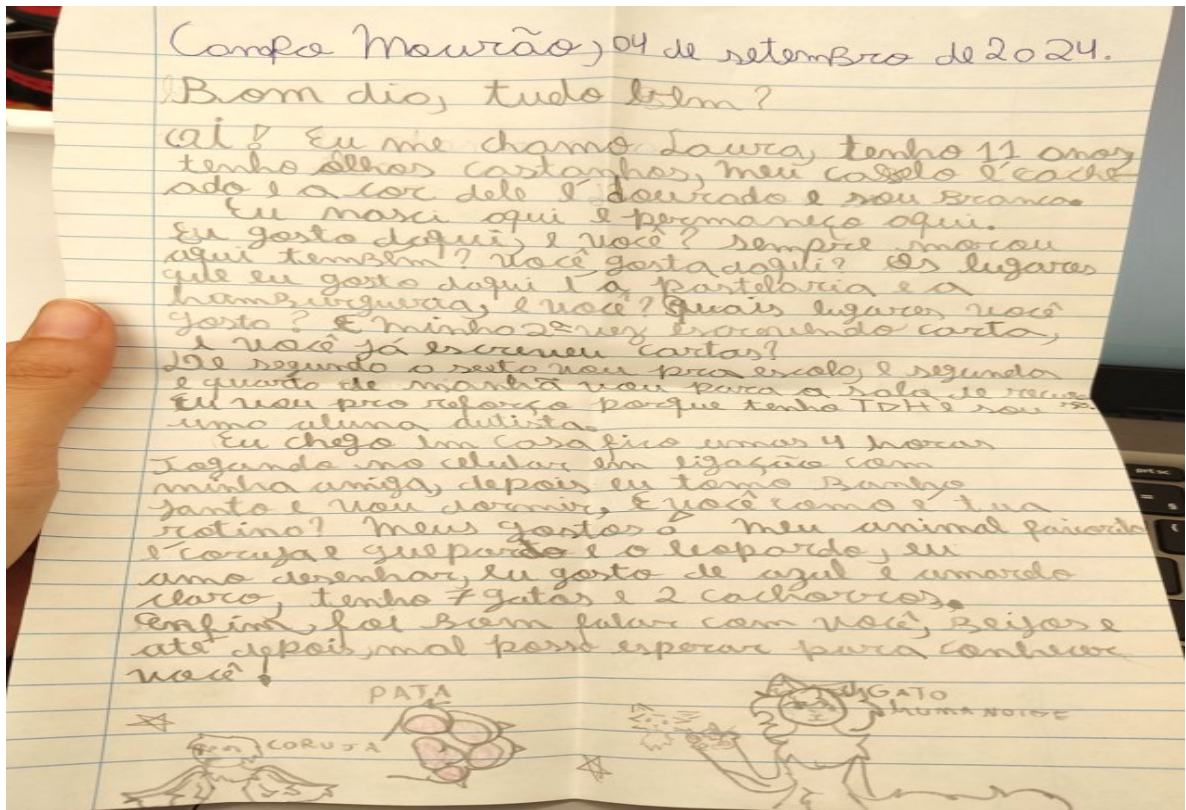 Campo Mourão, 04 de setembro de 2024.
Bom dia, tudo bem?
Oi! Eu me chamo Laura, tenho 11 anos,
tenho olhos castanhos, meu cabelo é cache-
ado e a cor dele é dourado e sou branca.
Eu nasci aqui e permaneço aqui.
Eu gosto daqui, e você? sempre morou
aqui tembém? você gosta daqui? Os lugares
que eu gosto daqui é a pastelaria e a
hamburgueria, e você? Quais lugares você
gosta? É minha 2ª vez escrevendo carta,
e você já escreveu cartas?
De segunda a sexta vou pra escola, e segunda
e quarta de manhã vou para a sala de
Eu vou pro reforço porque tenho TDH e sou
uma aluna autista.
Eu chego em casa fico umas 4 horas
Jogando no celular em ligação com
minha amiga, depois eu tomo banho
janto e vou dormir, E você como é tua
rotina? Meus gostos ó meu animal favorito
é coruja e guepardo e o leopardo, eu
amo desenhar, eu gosto de azul e amarelo
claro, tenho 7 gatos e 2 cachorros.
Enfim, foi bom falar com você, Beijos e
até depois, mal posso esperar para conhecer
você!
PATA
GATO
HUMANOIDE
CORUJA